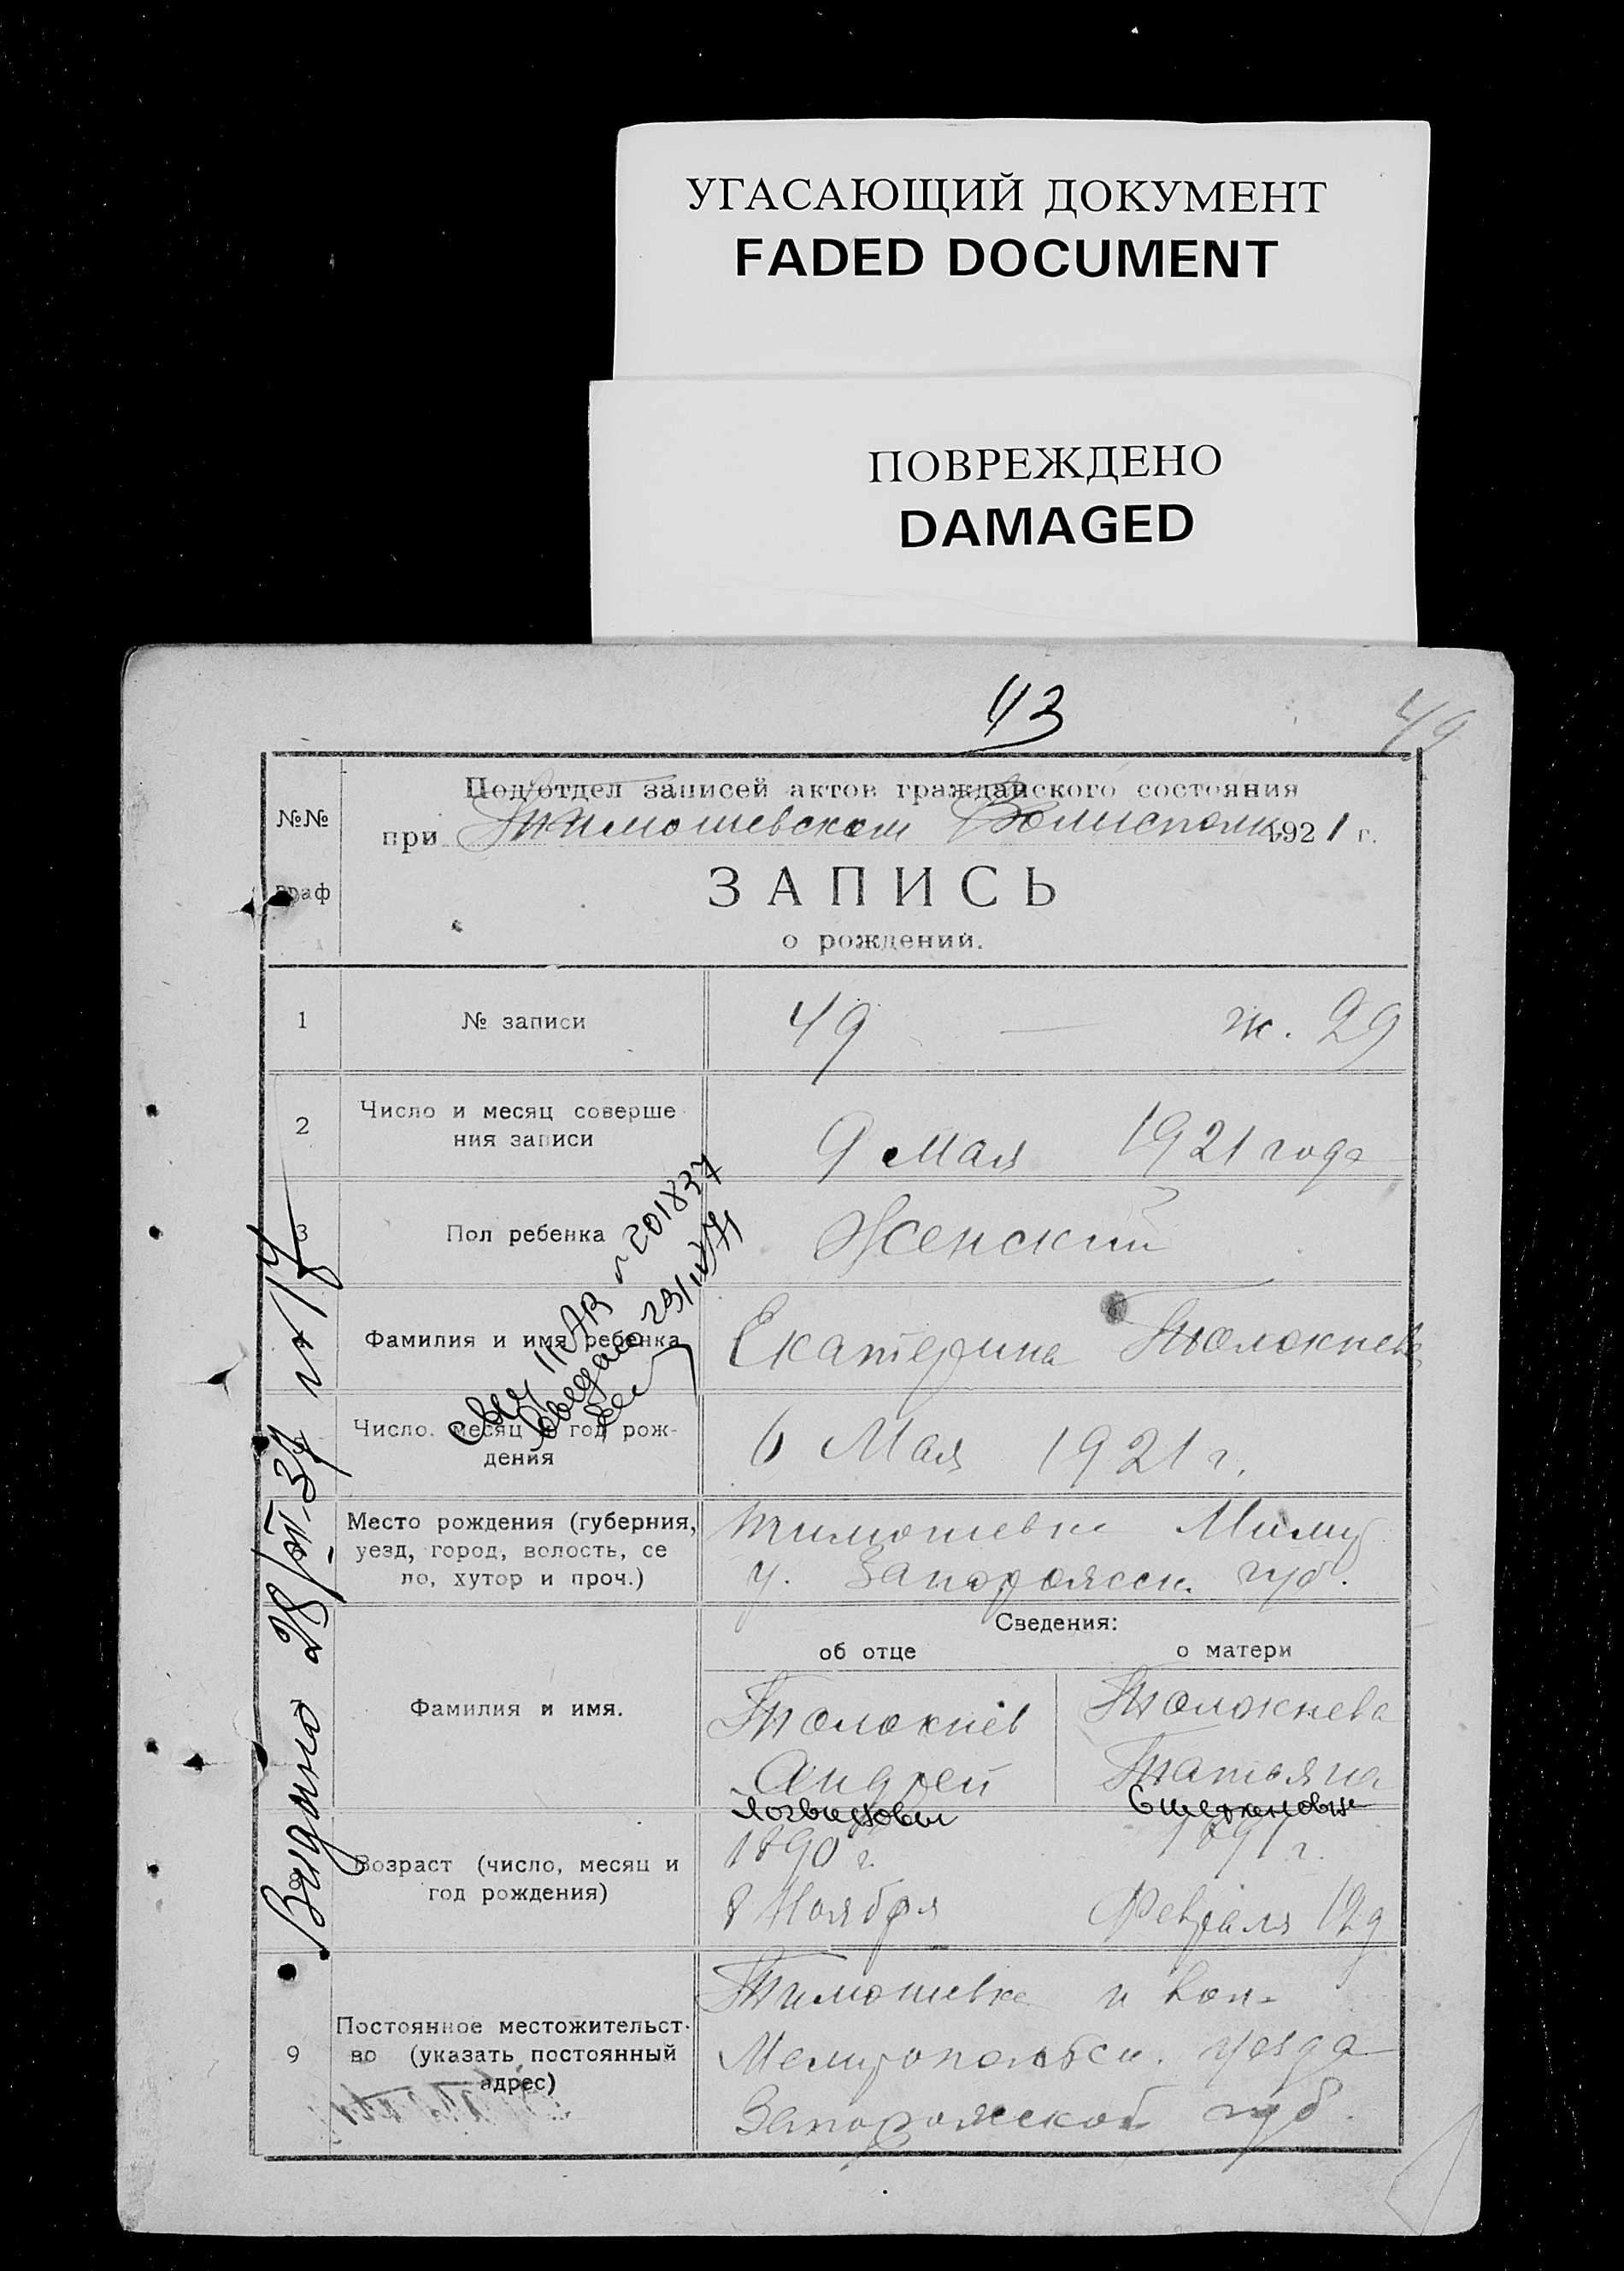 УГАСАЮЩИЙ ДОКУМЕНТ
FADED DOCUMENT
ПОВРЕЖДЕНО
DAMAGED
43
49
№№
граф
Под'отдел записей актов гражданского состояния
при Тимошевском Волисполк. 1921 г.
ЗАПИСЬ
о рождений.
1 № записи 49 — ж. 29
2 Число и месяц соверше
ния записи 9 Мая 1921 года
3 Пол ребенка Женский
Фамилия и имя ребенка Екатерина Толокнева
Число. месяц и год рож-
дения 6 Мая 1921 г.
Место рождения (губерния,
уезд, город, волость, се
ло, хутор и проч.)
Тимошевка Мелит
у. Запорожск. губ.
Сведения:
об отце о матери
Фамилия и имя.
Толокнев Толокнева
Андрей Татьяна
Логвинович Степановна
8 Возраст (число, месяц и
год рождения)
1890 г. 1891 г.
8 Ноября Февраля 12 д
9 Постоянное местожительст-
во (указать постоянный
адрес)
Тимошевка и вол-
Мелитопольск. уезда
Запорожской губ.
Видано 28/VII-37 № 17
свид. II АВ № 201837